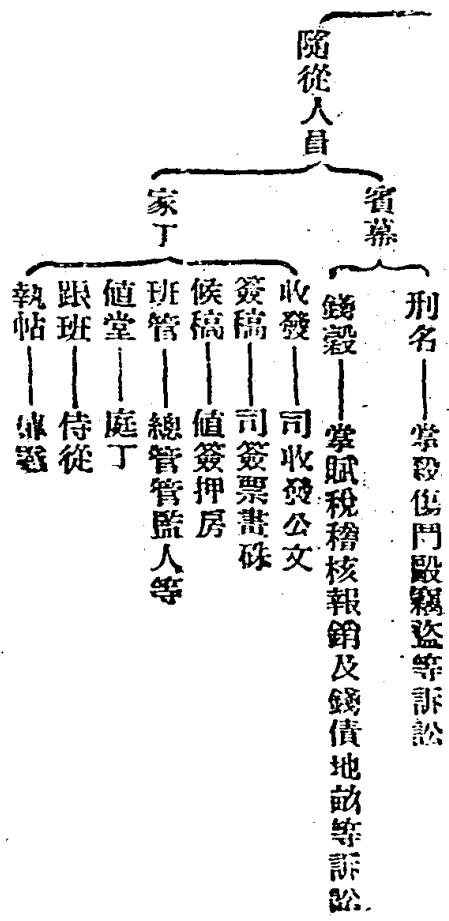 隨從人員
賓幕
刑名——掌殺傷鬥毆竊盜等訴訟
錢穀——掌賦稅稽核報銷及錢債地畝等訴訟
家丁
收發——司收發公文
簽稿——司簽票畫硃
候稿——值簽押房
班管——總管管監人等
値堂——庭丁
跟班——侍從
執帖